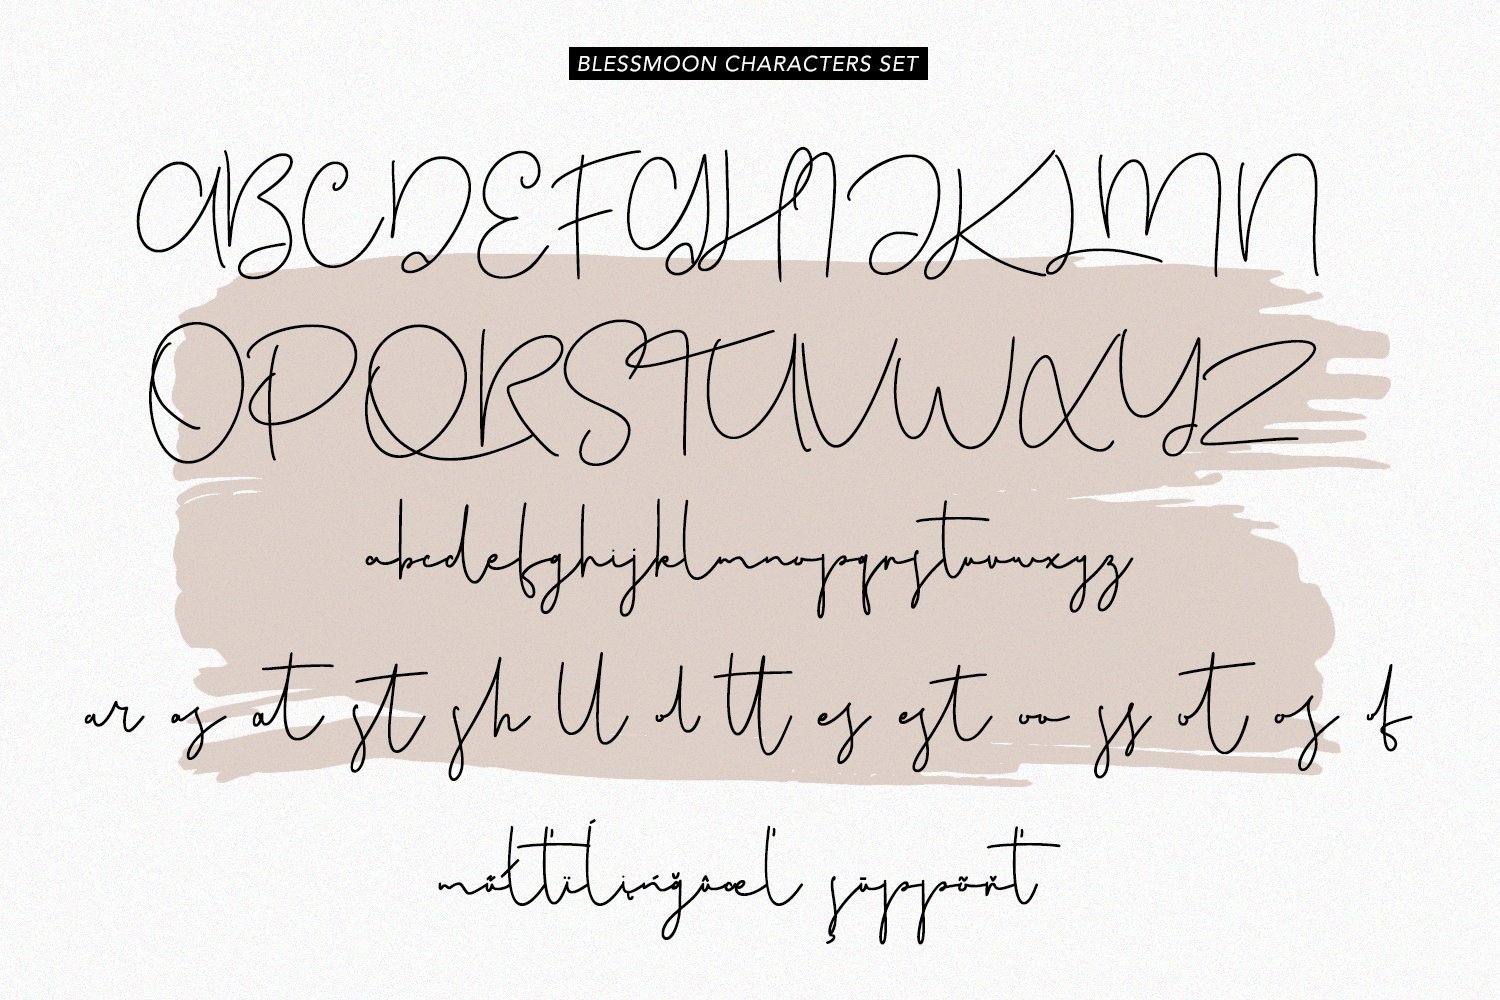 BLESSMOON CHARACTERS SET
ABCDEFGHIJKLMN
OPQRSTUVWXYZ
abcdefghijklmnopqrstuvwxyz
ar as at st sh ll ol tt es est oo ss ot os of